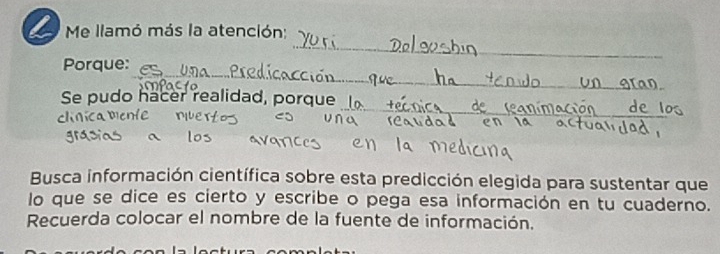 Me llamó más la atención: Yuri Delgoshin
Porque: es una predicacción que ha tenido un gran
impacto
Se pudo hacer realidad, porque la técnica de reanimación de los
clinicamente muertos es una realidad en la actualidad,
grasias a los avances en la medicina
Busca información científica sobre esta predicción elegida para sustentar que
lo que se dice es cierto y escribe o pega esa información en tu cuaderno.
Recuerda colocar el nombre de la fuente de información.